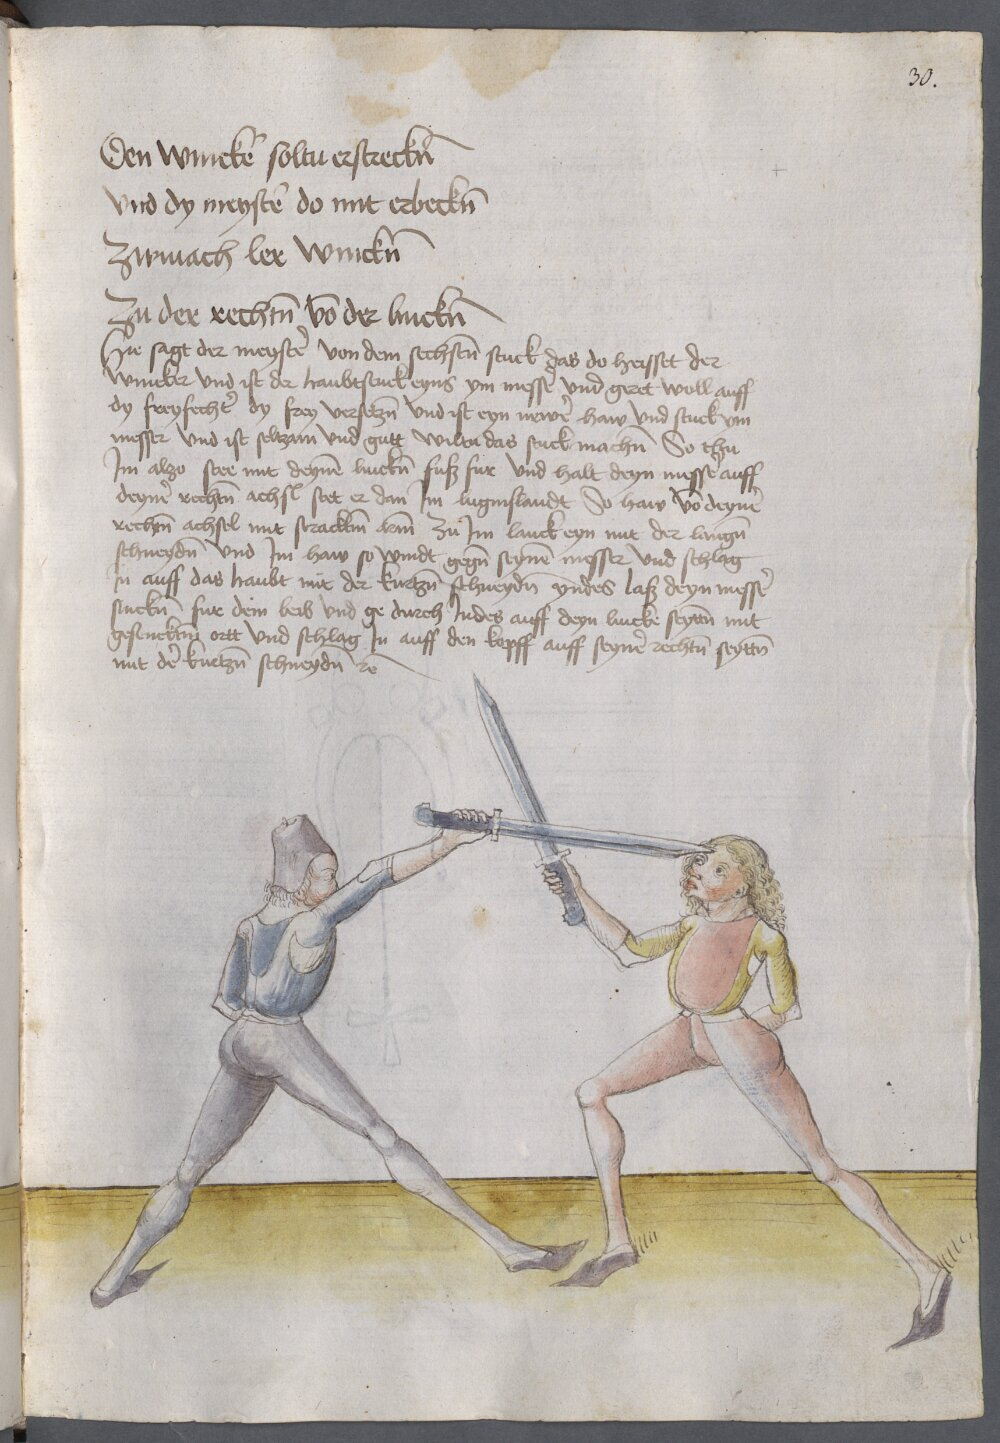 30.
Den Wincker̄ soltu erstreckn̄
Vnd dy meyster̄ do mit erbeckn̄
Zwinach ler Winckn̄
Zu der rechtn̄ vō der linckn̄
Hie sagt der meyster̄ von dem sechstn̄ stuck das do heisset der
Wincker Vnd ist der haubtstuck eyns ym messer̄ vnd geret woll auff
dy freyfechter̄ dy frey versetzn̄ Vnd ist eyn newer̄ haw Vnd stuck ym
messer Vnd ist seltzam Vnd gutt Wiltu das stuck machn̄ So thu
Im alzo stee mit deynē linckn̄ fuß fur Vnd halt deyn messer auff
deyner̄ rechtn̄ achsl stet er dan Im luginslandt So haw vō deyner̄
rechtn̄ achsel mit stracktm̄ arm̄ Zu Im lauck eyn mit der langn̄
schneydn̄ Vnd Im haw so windt gegn̄ seynē messer Vnd schlag
In auff das haubt mit der kurtzn̄ schneydn̄ vndes laß deyn messer̄
sinckn̄ fur dein leib Vnd ge durch Indes auff deyn lincke seyttn̄ mit
gesencktm̄ ortt Vnd schlag In auff den kopff auff seyner̄ rechtn̄ seyttn̄
mit der̄ kurtzn̄ schneydn̄ rē